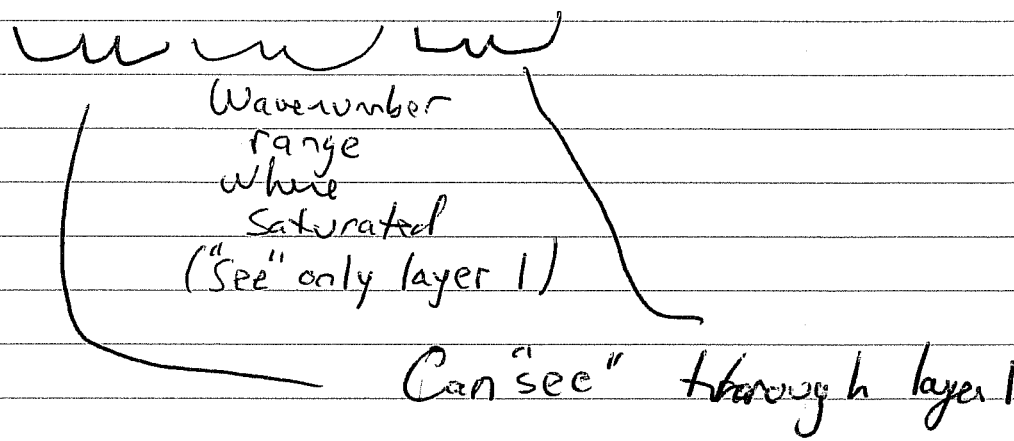 Wavenumber
range
where
saturated
("see" only layer 1)
Can "see" through layer 1